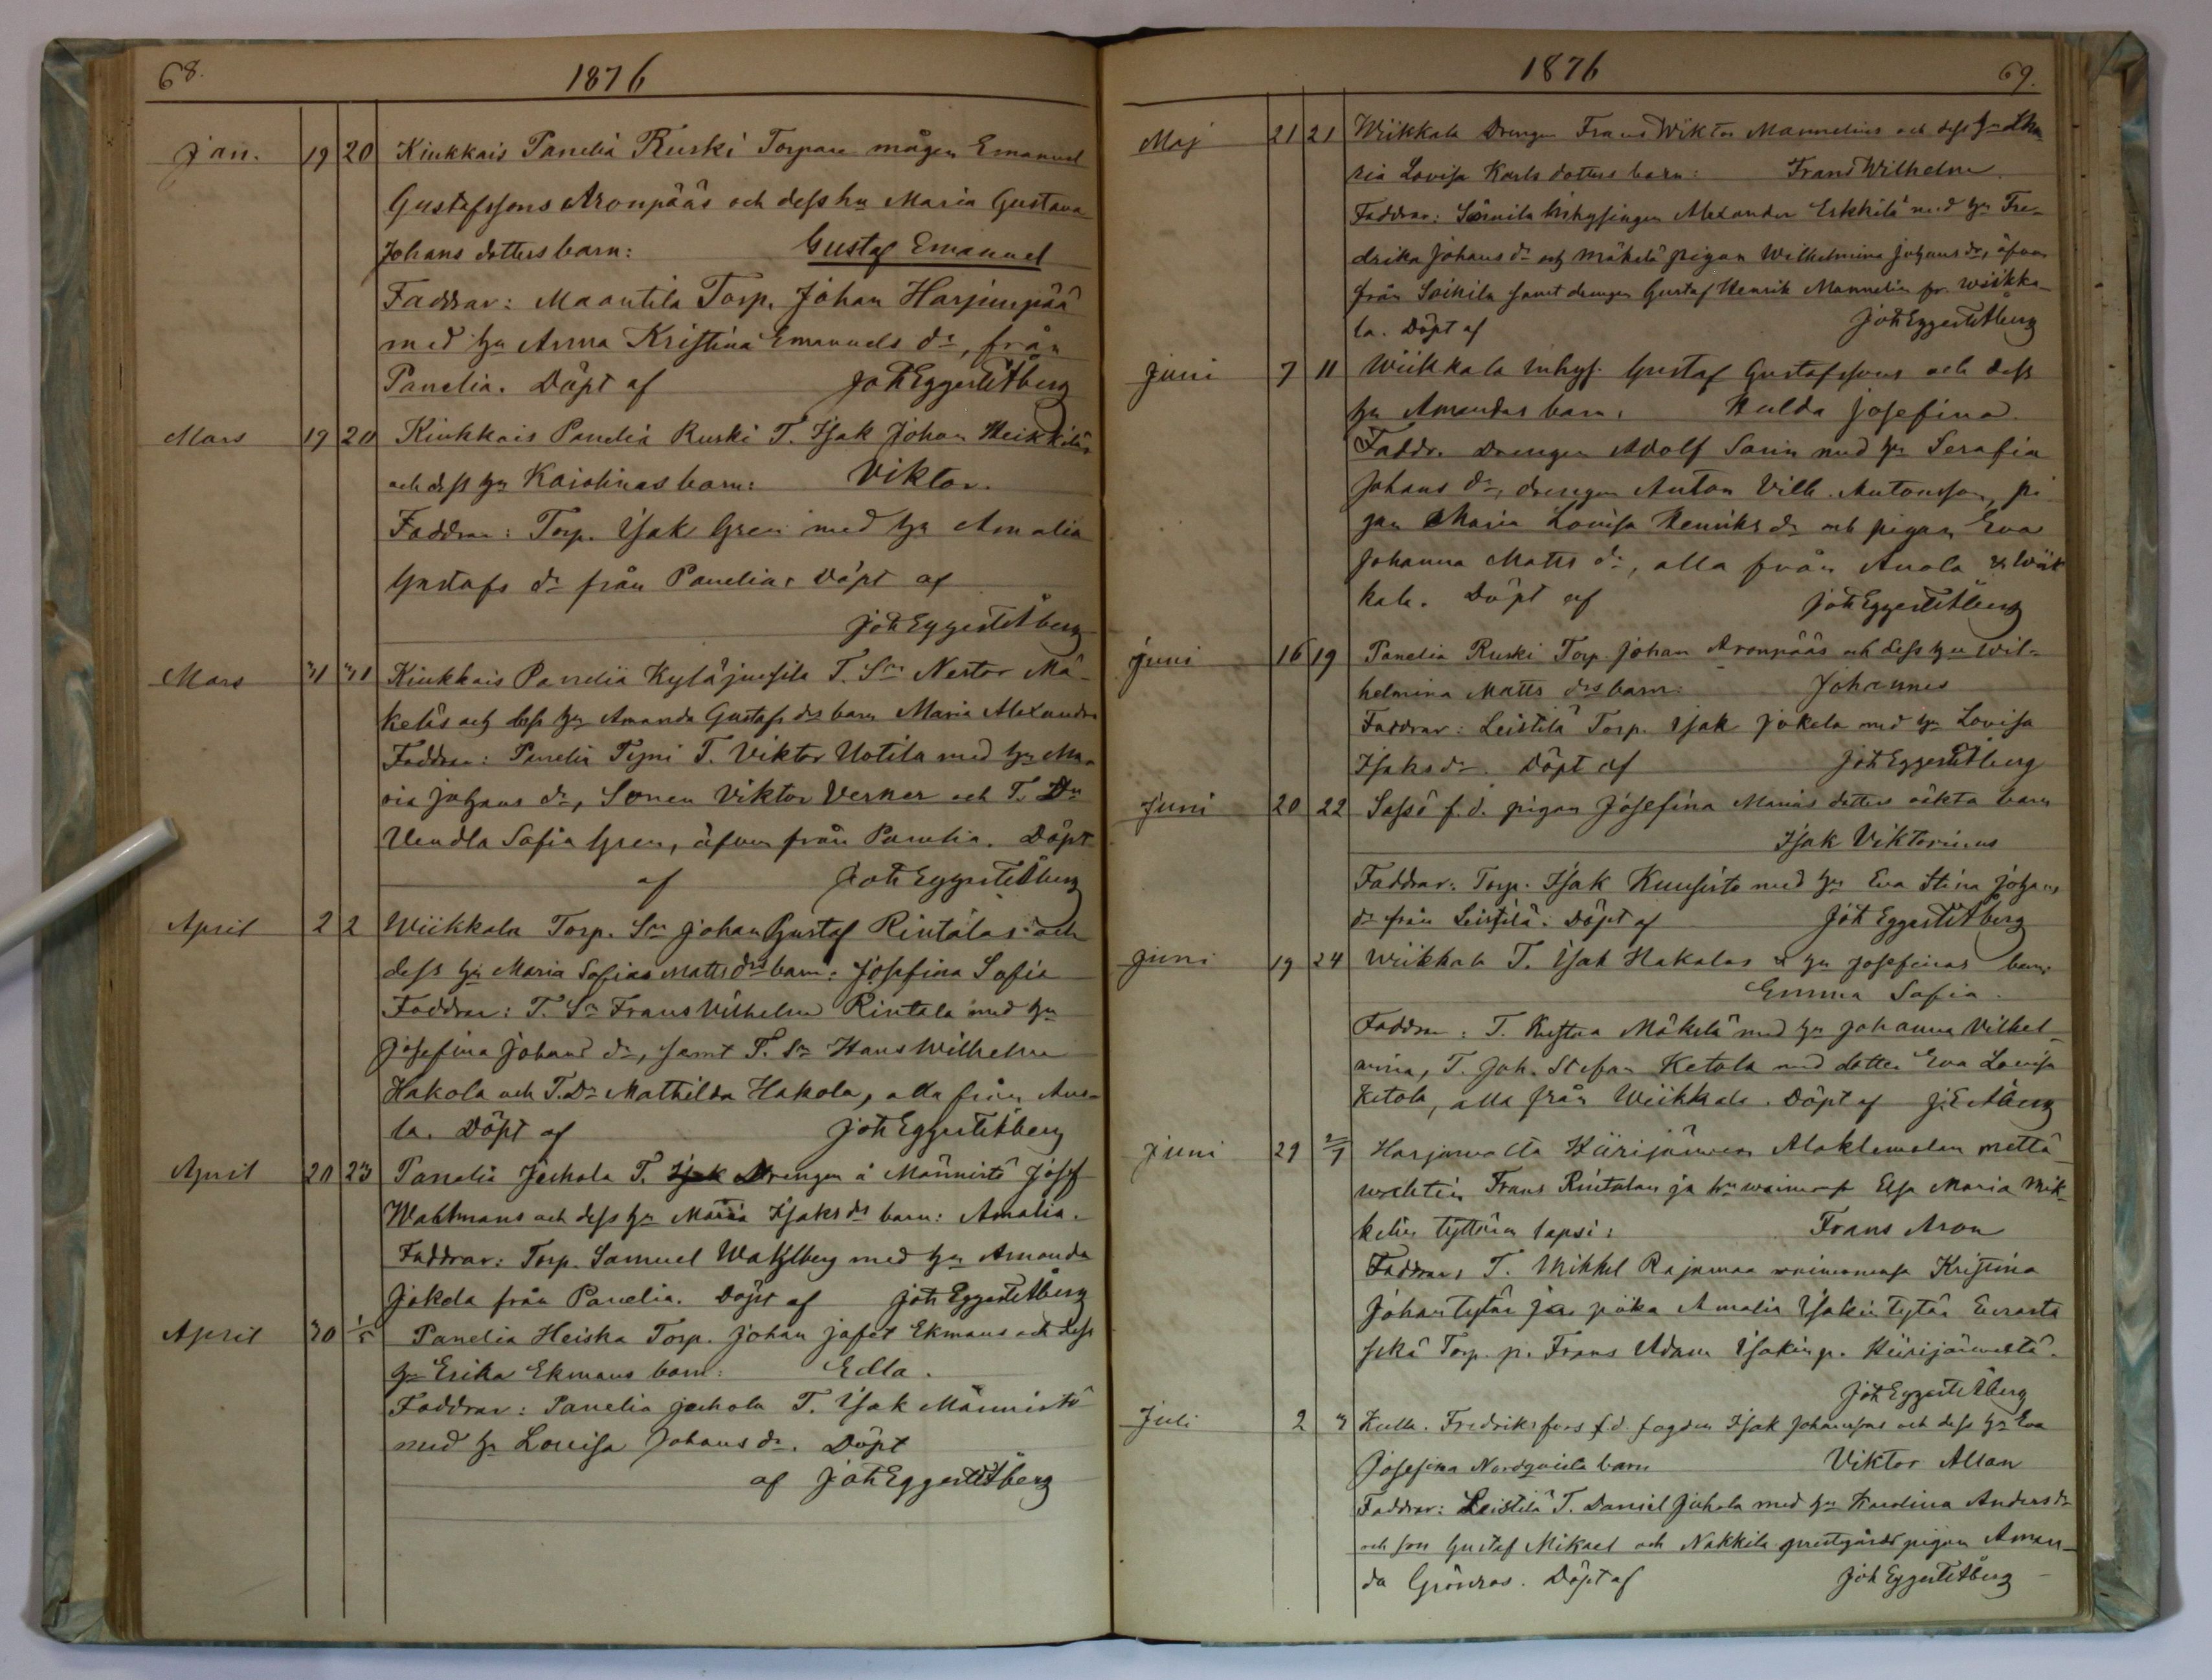 68.
1876
Jan. 19 20 Kiukkais Panelia Ruski Torpare mågen Emanuel
Gustafssons Aronpääs och dess hu Maria Gustava
Johans dotters barn: Gustaf Emanuel
Faddrar: Maantila Torp. Johan Harjunpää
med hu Anna Kristina Emanuels dr, från
Panelia. Döpt af Joh Eggert Åberg
Mars 19 20 Kiukkais Panelia Ruski T. Isak Johan Heikkiläs
och dess hu Karolinas barn: Viktor.
Faddrar: Torp. Isak Gren med hu Amalia
Gustafs dr från Panelia. Döpt af
Joh Eggert Åberg
Mars 31 31 Kiukkais Panelia Kyläjussila T. Sn Nestor Mä-
keläs och dess hu Amanda Gustafs drs barn Maria Alexandra
Faddrar: Panelia T. Viktor Uotila med hu Ma-
ria Johans dr, Sonen Viktor Verner och T. Dn
Vendla Sofia Gren, äfven från Panelia. Döpt
af Joh Eggert Åberg
April 2 2 Wiikkala Torp. Sn Johan Gustaf Rintalas och
dess hu Maria Sofias Matts drs barn: Josefina Sofia
Faddrar: T. Sn Frans Wilhelm Rintala med hu
Josefina Johans dr, samt T. Sn Hans Wilhelm
Hakola och T. Dr Mathilda Hakola, alla från Ano-
la. Döpt af Joh Eggert Åberg
April 20 23 Panelia Jaakola T. Drengen å Männistö Josef
Wahlmans och dess hu Maria Isaks drs barn: Amalia.
Faddrar: Torp. Samuel Wahlberg med hu Amanda
Jokela från Panelia. Döpt af Joh Eggert Åberg
April 30 1/5 Panelia Heiska Torp. Johan Jafet Ekmans och dess
hu Erika Ekmans barn: Edla.
Faddrar: Panelia Jaakola T. Isak Männistö
med hu Lovisa Johans dr. Döpt
af Joh Eggert Åberg
1876
69.
Maj 21 21 Wiikkala Drengen Frans Wiktor Mannelins och dess hu Ma-
ria Lovisa Karls dotters barn: Frans Wilhelm.
Faddrar: inhysingen Alexander Erkkilä med hu Fre-
drika Johans dr och Mäkelä pigan Wilhelmina Johans dr, äfven
från samt drengen Gustaf Henrik Mannelin fr. Wiikka-
la. Döpt af Joh Eggert Åberg
Juni 7 11 Wiikkala inhys. Gustaf Gustafssons och dess
hu Amandas barn: Hulda Josefina.
Faddr. Drengen Adolf Sarin med hu Serafia
Johans dr, drengen Anton Vilh. Antonsson, pi-
gan Maria Lovisa Henriks dr och pigan Eva
Johanna Matts dr, alla från Anola & Wiik-
kala. Döpt af Joh Eggert Åberg
Juni 16 19 Panelia Ruski Torp. Johan Aronpääs och dess hu Wil-
helmina Matts drs barn: Johannes
Faddrar: Leistilä Torp. Isak Jokela med hu Lovisa
Isaks dr. Döpt af Joh Eggert Åberg
Juni 20 22 Sassi f.d. pigan Josefina Marias dotters oäkta barn
Isak Viktorinus
Faddrar: Torp. Isak Kuusisto med hu Eva Stina Johans
dr från Leistilä. Döpt af Joh Eggert Åberg
Juni 19 24 Wiikkala T. Isak Hakalas & hu Josefinas barn:
Emma Sofia.
Faddrar: T. Kustaa Mäkelä med hu Johanna Vilhel-
mina, T. Joh. Stefan Ketola med dotter Eva Lovisa
Ketola, alla från Wiikkala. Döpt af J.E. Åberg
Juni 29 2/7 Harjavalta Hiirijärven mettä-
wahtin Frans Rintalan ja hn waimonsa Elsa Maria Mik-
kelin tyttären lapsi: Frans Aron
Faddrar: T. Mikkel Rajamaa waimonensa Kristina
Johantytär ja piika Amalia Isakintytär Eurasta
sekä Torp. p. Frans Adam Isakinp. Hiirijärweltä.
Joh Eggert Åberg
Juli 2 3 Kulla. Fredriksfors f.d. fogden Isak Johanssons och dess hu Eva
Josefina Nordqvists barn Viktor Allan
Faddrar: Leistilä T. Daniel Juhola med hu Karolina Anders dr
och son Gustaf Mikael och Nakkila prestgårds pigan Aman-
da Grönroos. Döpt af Joh Eggert Åberg